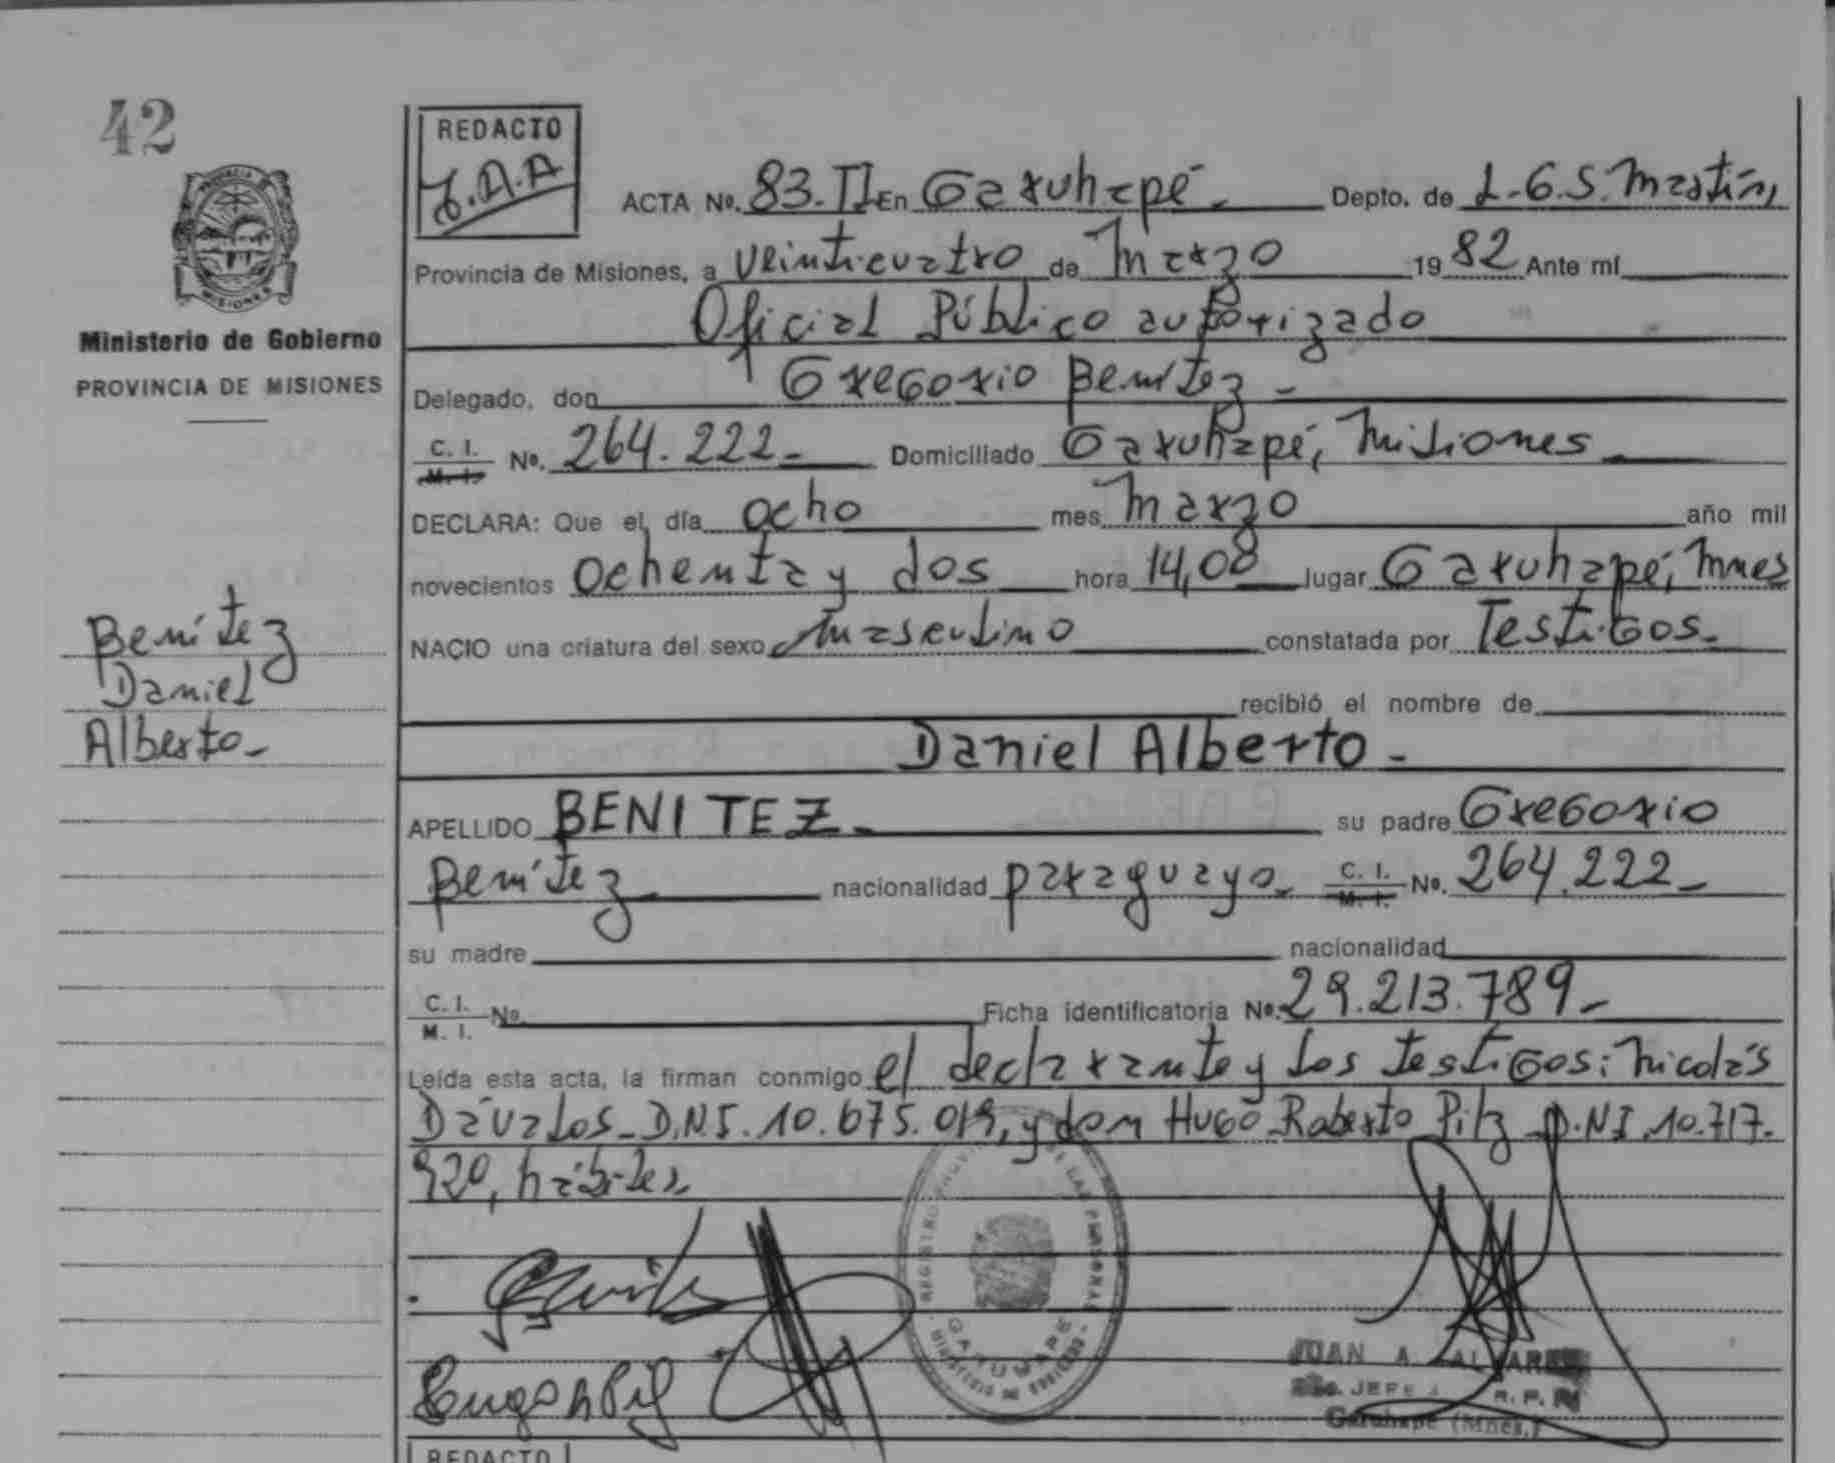 42
REDACTO
J.A.A
ACTA No. 83.II En Garuhapé - Depto. de L.G.S. Martín,
PROVINCIA DE MISIONES
Provincia de Misiones, a veinticuatro de Marzo 1982 Ante mí
Oficial Público autorizado
Ministerio de Gobierno
PROVINCIA DE MISIONES
Delegado, don Gregorio Benítez -
C. I. M. I. No. 264.222 - Domiciliado Garuhapé, Misiones
DECLARA: Que el día ocho mes Marzo año mil
novecientos ochenta y dos hora 14,08 lugar Garuhapé, Mnes
NACIO una criatura del sexo Masculino constatada por Testigos -
Benítez
Daniel
Alberto -
recibió el nombre de
Daniel Alberto -
APELLIDO BENITEZ - su padre Gregorio
Benítez - nacionalidad paraguayo - C. I. M. I. No. 264.222 -
su madre nacionalidad
C. I. M. I. No. Ficha identificatoria No. 29.213.789 -
Leída esta acta, la firman conmigo el declarante y los testigos: Nicolás
Dávalos - D.N.I. 10.675.019, y don Hugo Roberto Pilz D.N.I. 10.717.
920, hábiles
GARUHAPE
JUAN A. ALVAREZ
JEFE R. P.
Garuhapé (Mnes.)
REDACTO